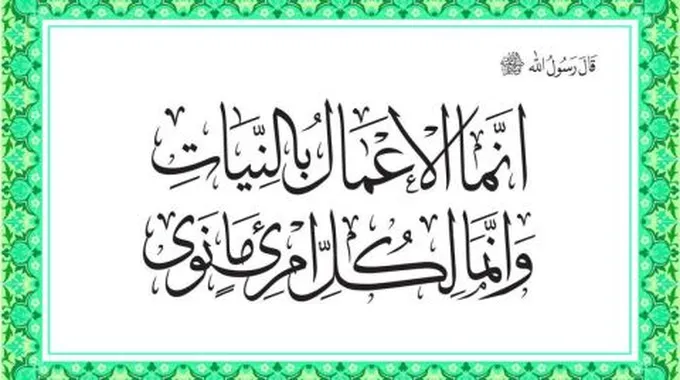 قَالَ رَسُولُ الله ﷺ
اِنَّمَا الْاَعْمَالُ بِالنِّيَّاتِ
وَاِنَّمَا لِكُلِّ امْرِئٍ مَانَوَى